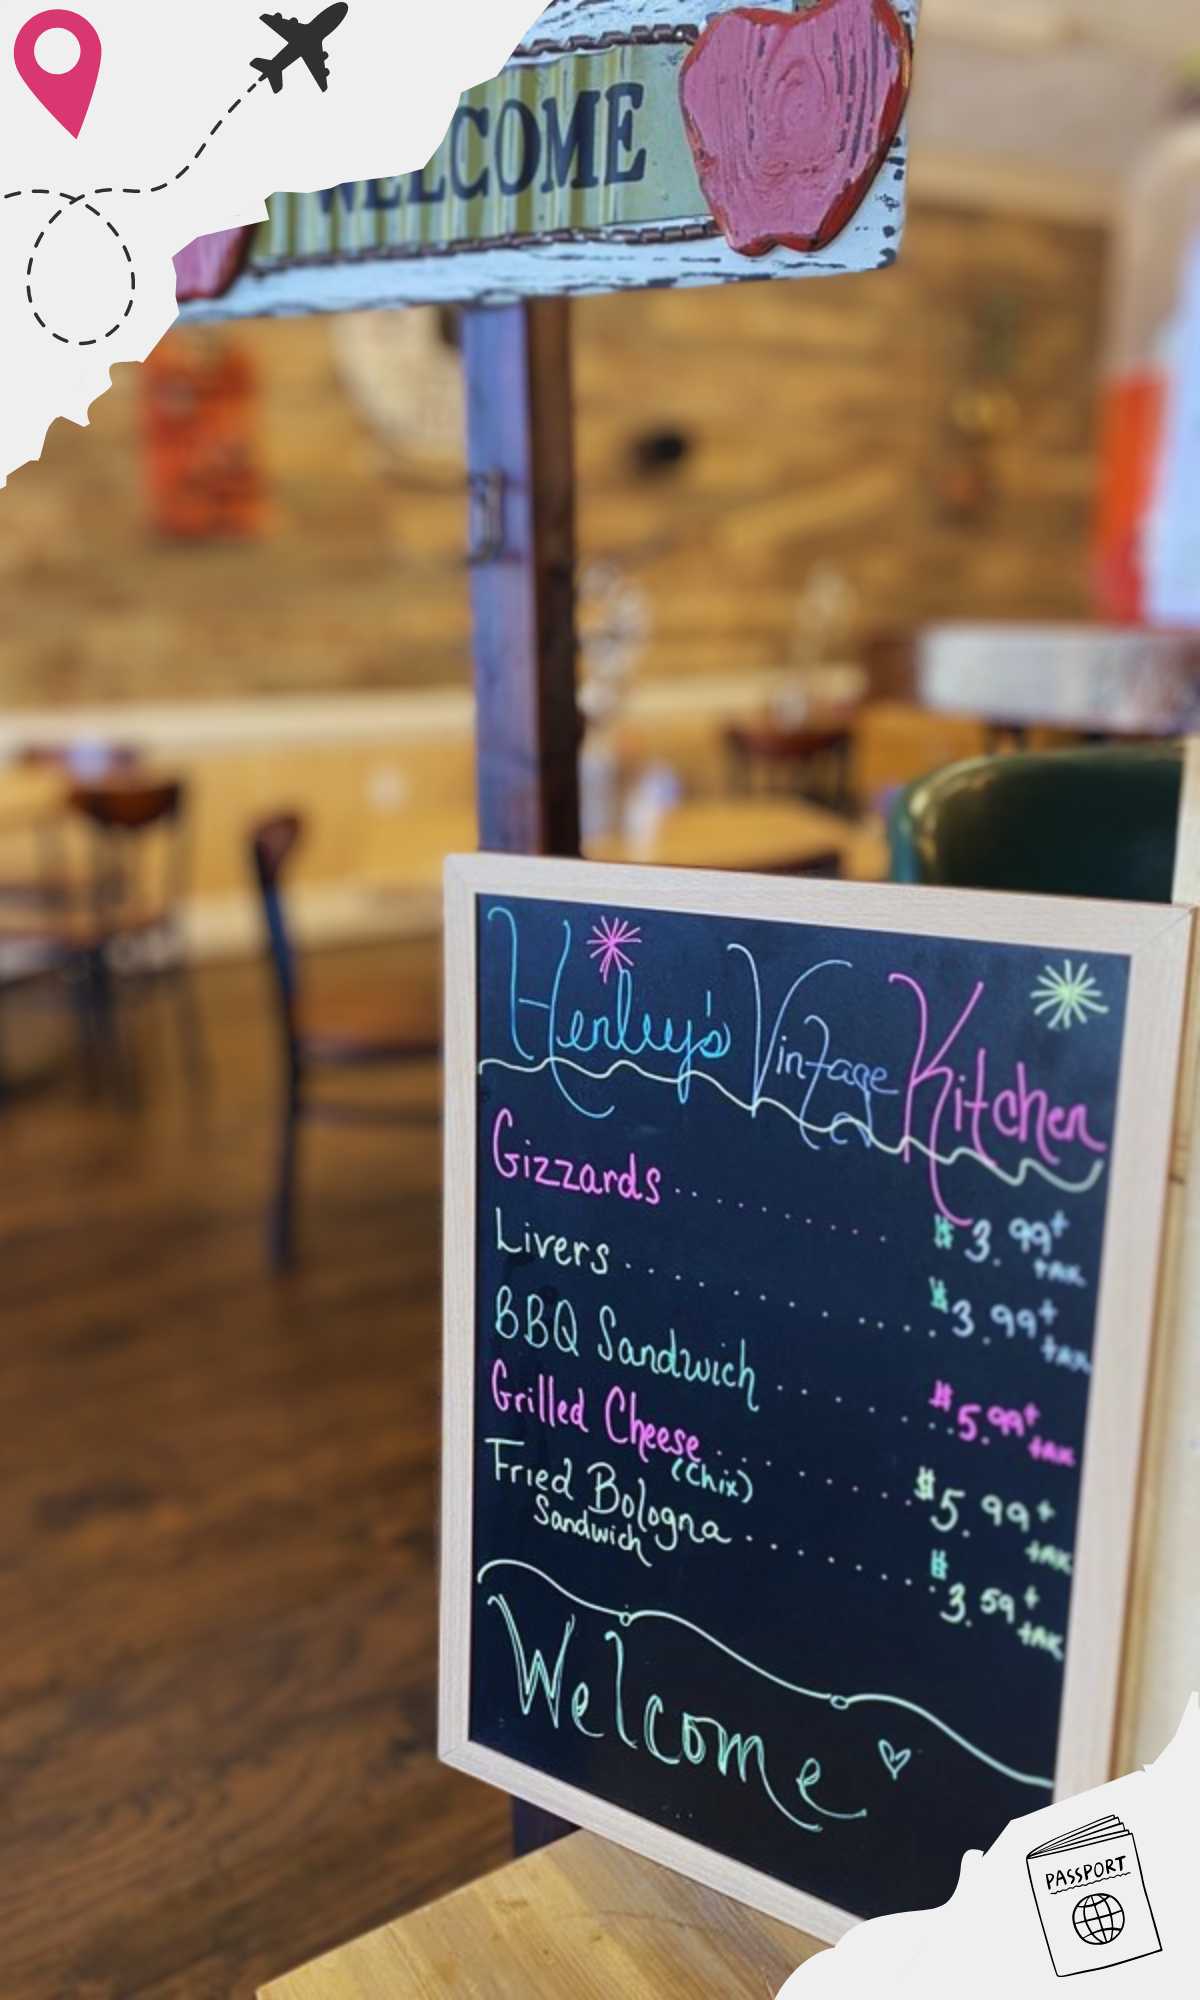 WELCOME
Herley's Vintage Kitchen
Gizzards........ $3.99+ tax
Livers............ $3.99+ tax
BBQ Sandwich...... $5.99+ tax
Grilled Cheese........ $5.99+ tax
(Chix)
Fried Bologna........ $3.59+ tax
Sandwich
Welcome
PASSPORT